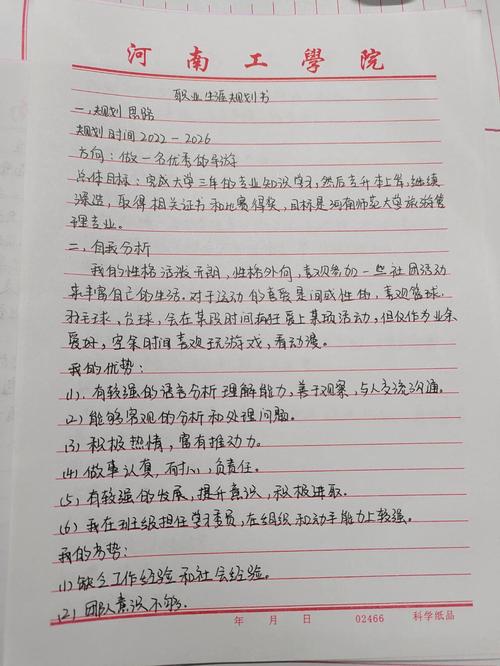 河南工學院
职业生涯规划书
一、规划思路
规划时间2022-2026
方向：做一名优秀的导游
总体目标：完成大学三年的专业知识学习，然后专升本上岸，继续
深造，取得相关证书和比赛得奖，目标是河南师范大学旅游管
理专业。
二、自我分析
我的性格活泼开朗，性格外向，喜欢参加一些社团活动
来丰富自己的生活。对于运动的喜爱是间或性的，喜欢篮球，
羽毛球，台球，会在某段时间疯狂爱上某项活动，但仅作为业余
爱好，空余时间喜欢玩游戏，看动漫。
我的优势：
(1)、有较强的语言分析理解能力，善于观察，与人交流沟通。
(2)能够客观的分析和处理问题。
(3)积极热情，富有推动力。
(4)做事认真，有耐心，负责任。
(5)有较强的发展，提升意识，积极进取。
(6)我在班级担任学习委员，在组织和动手能力上较强。
我的劣势：
(1)缺乏工作经验和社会经验。
(2)团队意识不够。
年 月 日 02466 科学纸品